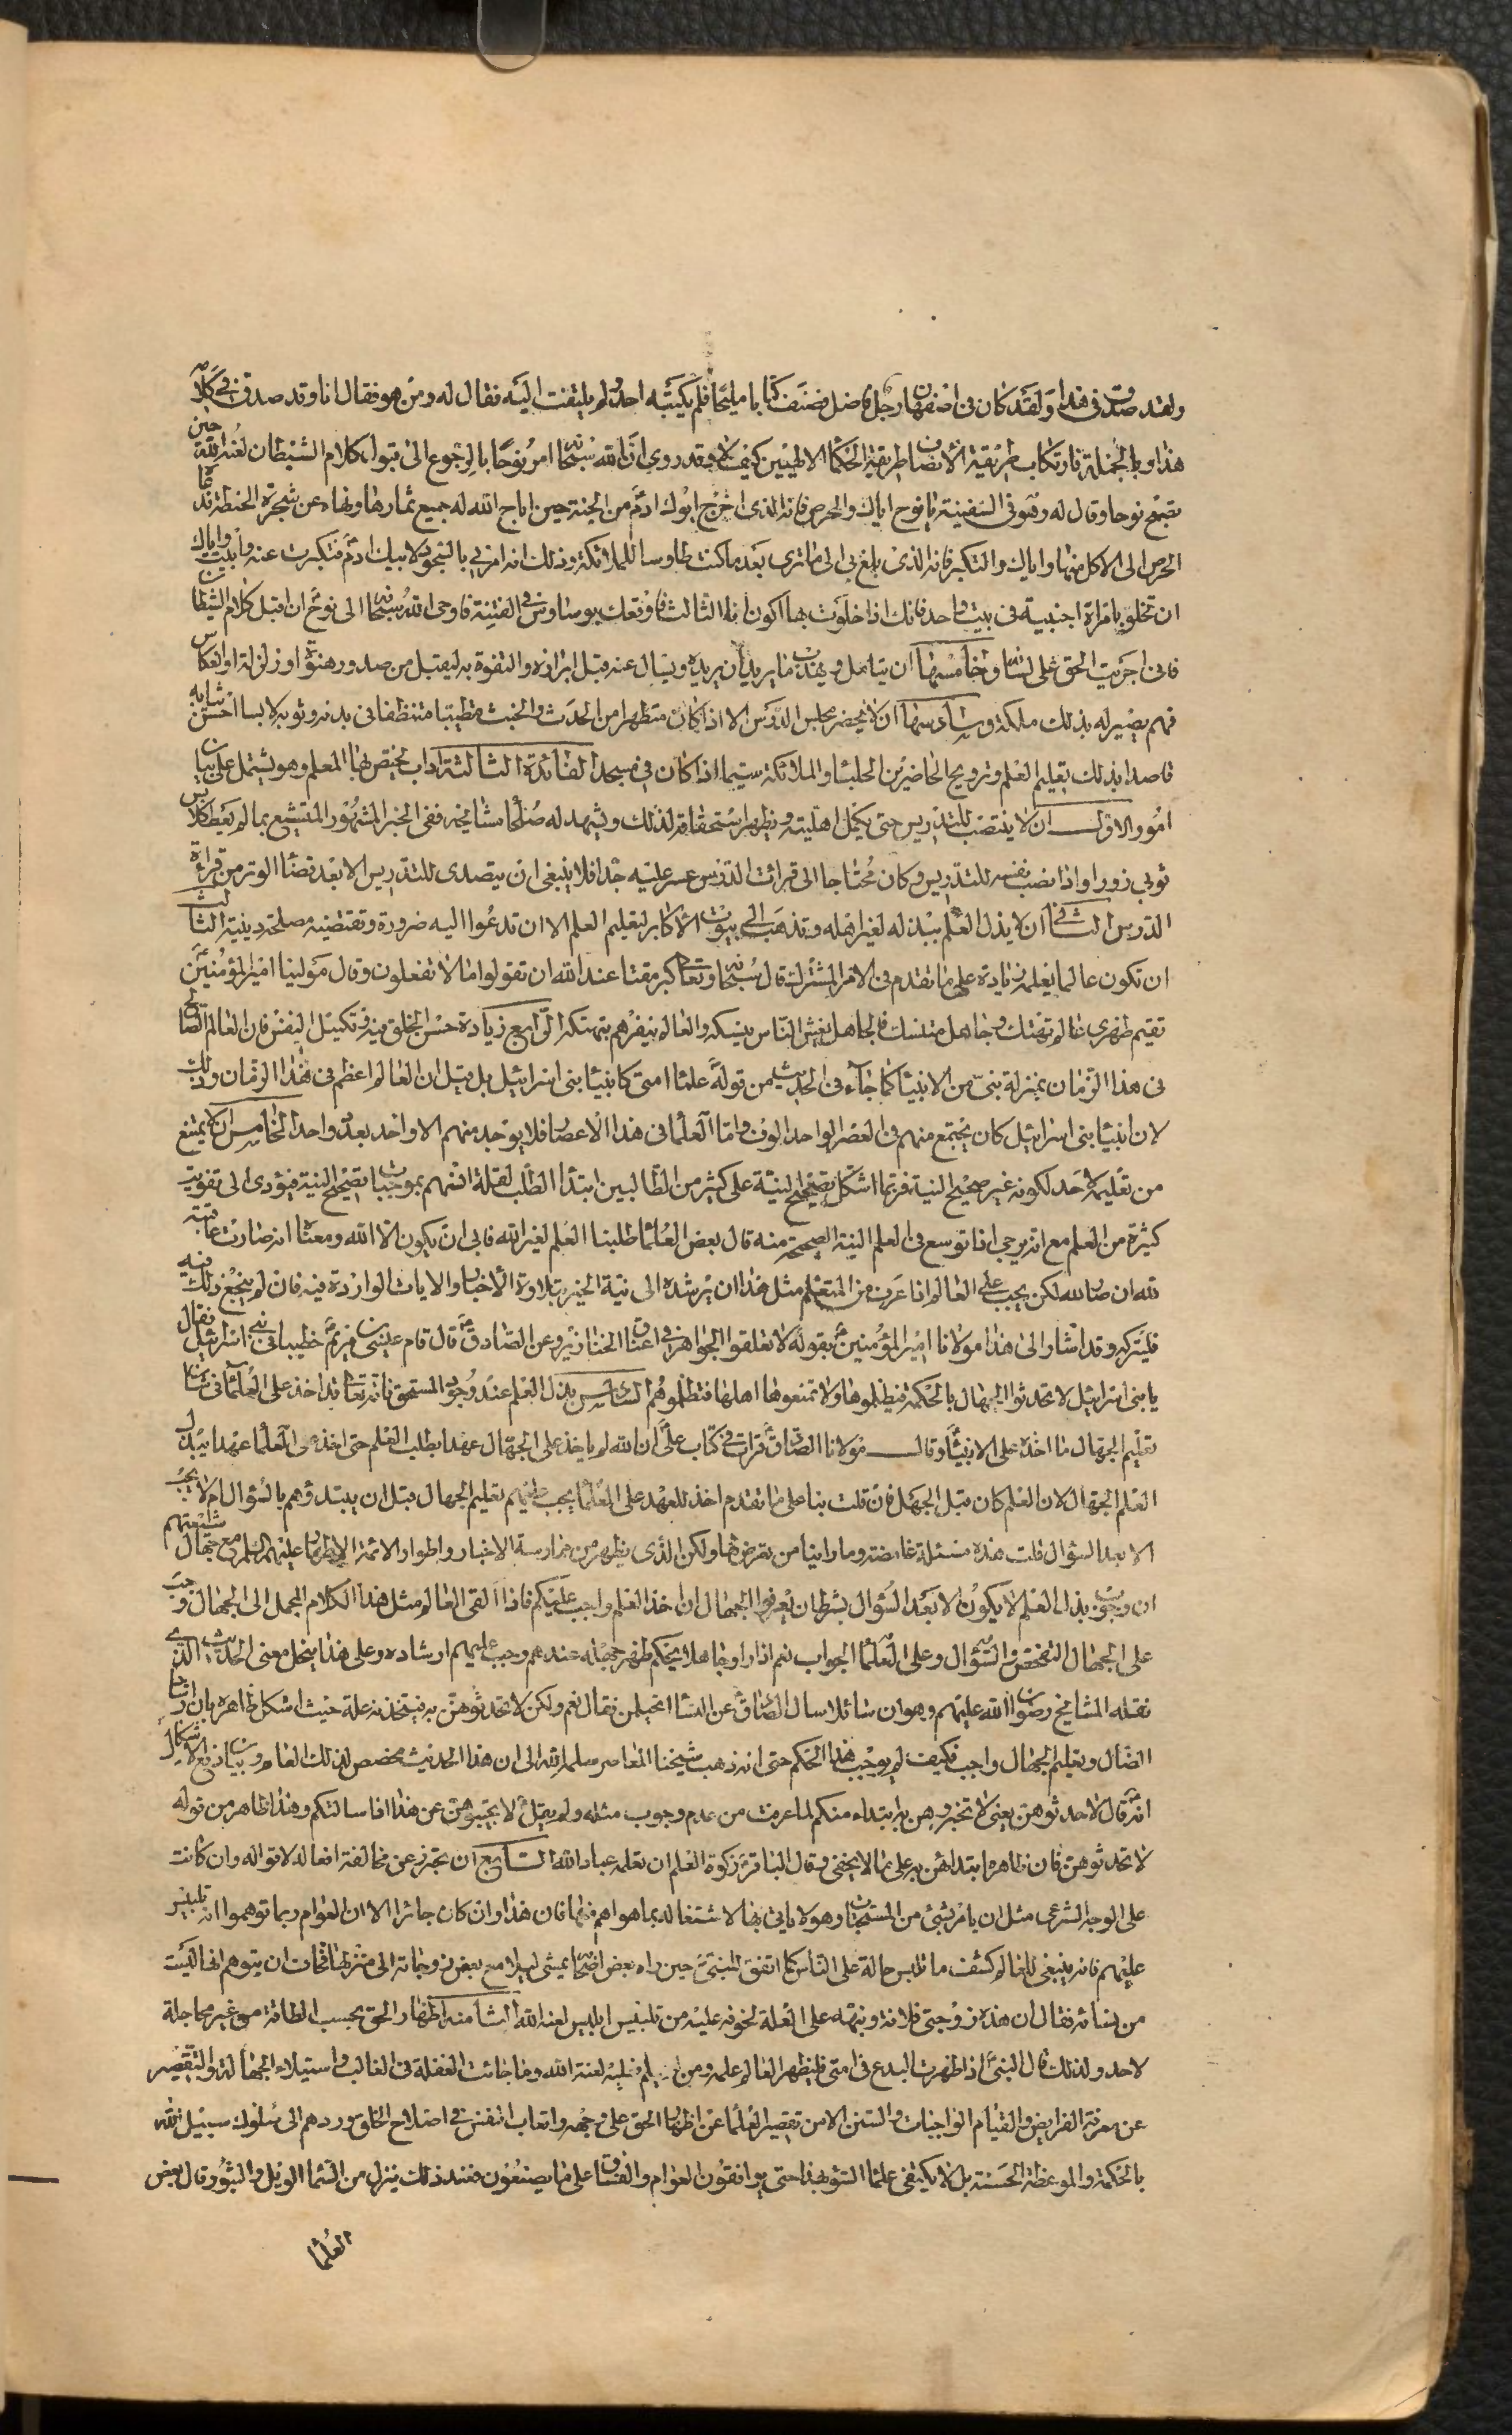 ولقد صدق فى هذا ولقد كان فى اصفهان رجل فاضل فصنف كتابا مليحا فلم يكتبه احد ولم يلتفت اليه فقال له ومن هو فقال انا وقد صدق فى كلامه
هذا وبالجملة فارتكاب طريقة الانصاف طريقة الحكما الالهيين كيف لا وقد روى ان الله سبحانه امر نوحا بالرجوع الى قبول كلام الشيطان لعنه الله حين
نصح نوحا وقال له وهو فى السفينة يا نوح اياك والحرص فانه الذى اخرج ابوك ادم من الجنة حين اباح الله له جميع ثمارها ونهاه عن شجرة الحنطة فدعاه
الحرص الى الاكل منها واياك والتكبر فانه الذى بلغ بى الى ما ترى بعد ما كنت طاوسا للملائكة وذلك انه امرنى بالسجود لابيك ادم فتكبرت عنه وابيت واياك
ان تخلو بامراة اجنبية فى بيت واحد فانك اذا خلوت بها اكون انا الثالث فاوقعك بوساوسى فى الفتنة فاوحى الله سبحانه الى نوح ان اقبل كلام الشيطان
فانى اجريت الحق على لسانه وخامسها ان يتامل ويهذب ما يريد ان يريده ويسال عنه قبل ابرازه والتفوه به ليقبل من صدور هفوة او زلزلة او انعكاس
فهم يصير له بذلك ملكة وسادسها ان لا يحضر مجلس الدرس الا اذا كان متطهرا من الحدث والخبث متطيبا متنظفا فى بدنه وثوبه لابسا احسن ثيابه
قاصدا بذلك تعليم العلم وترويح الحاضرين من الجلساء والملائكة سيما اذا كان فى مسجد الفائدة الثالثة اداب يختص بها المعلم وهو يشتمل على بيان
امور الاول ان لا ينتصب للتدريس حتى يكمل اهليته ويظهر استحقاقه لذلك ويشهد له صلحا مشايخه ففى الخبر المشهور المتشبع بما لم يعط كلابس
ثوبى زور واذا نصب نفسه للتدريس وكان محتاجا الى قرائت الدرس عسر عليه جدا فلا ينبغى ان يتصدى للتدريس الا بعد قضا الوتر من قراءة
الدرس الثانى ان لا يذل العلم ببذله لغير اهله وتذهب الى بيوت الاكابر لتعليم العلم الا ان تدعوا اليه ضرورة وتقتضيه مصلحة دينية الثالث
ان تكون عاملا بعلمه زيادة على ما تقدم فى الامر المشترك قال سبحانه وتعالى كبر مقتا عند الله ان تقولوا ما لا تفعلون وقال مولينا امير المؤمنين
قصم ظهرى عالم متهتك وجاهل متنسك فالجاهل يغش الناس بنسكه والعالم ينفرهم بتهتكه الرابع زيادة حسن الخلق منه وتكميل النفس فان العالم الصالح
فى هذا الزمان بمنزلة نبى من الانبيا كما جاء فى الحديث من قوله علماء امتى كانبياء بنى اسرائيل بل قيل ان العالم اعظم فى هذا الزمان وذلك
لان انبيا بنى اسرائيل كان يجتمع منهم فى العصر الواحد الوف واما العلما فى هذا الاعصار فلا يوجد منهم الا واحد بعد واحد الخامس ان لا يمتنع
من تعليم احد لكونه غير صحيح النية فربما اشكل تصحيح النية على كثير من الطالبين ابتدا الطلب لقلة انسهم بموجبات تصحيح النية فيؤدى الى تفويت
كثرة من العلم مع انه يرجى اذا توسع فى العلم النية الصحيحة منه قال بعض العلما طلبنا العلم لغير الله فابى ان يكون الا الله ومعناه انه صارت عاقبته
لله ان صار لله لكن يجب على العالم اذا عرف من المتعلم مثل هذا ان يرشده الى نية الخير بتلاوة الاخبار والايات الواردة فيه فان لم ينجع ذلك فيه
فليتركه وقد اشار الى هذا مولانا امير المؤمنين بقوله لا تعلقوا الجواهر فى اعناق الخنازير وعن الصادق قال قام عيسى بن مريم خطيبا فى بنى اسرائيل فقال
يا بنى اسرائيل لا تحدثوا الجهال بالحكمة فتظلموها ولا تمنعوها اهلها فتظلموهم السادس بذل العلم عند وجود المستحق فانه تعالى قد اخذ على العلماء فى شان
تعليم الجهال ما اخذه على الانبياء وقال مولانا الصادق قرات فى كتاب على ان الله لم ياخذ على الجهال عهدا بطلب العلم حتى اخذ على العلما عهدا ببذل
العلم الجهال لان العلم كان قبل الجهل فان قلت بنا على ما تقدم اخذ للعهد على العلما يجب عليهم تعليم الجهال قبل ان يبتدؤهم بالسؤال ام لا يجب
الا بعد السؤال قلت هذه مسئلة غامضة وما راينا من تعرض لها ولكن الذى يظهر من ممارسة الاخبار واطوار الائمة الاطهار عليهم السلم مع جهال شيعتهم
ان وجوب بذل العلم لا يكون الا بعد السؤال بشرط ان يعرفوا الجهال ان اخذ العلم واجب عليكم فاذا القى العالم مثل هذا الكلام المجمل الى الجهال وجب
على الجهال التفحص والسؤال وعلى العلما الجواب نعم اذا راو جاهلا يحكم ظهر جهله عندهم وجب عليهم ارشاده وعلى هذا ينحل معنى الحديث الذى
نقله المشايخ رضوان الله عليهم وهو ان سائلا سال الصادق عن النسا اتحتلمن فقال نعم ولكن لا تحدثوهن به فيتخذنه علة حيث اشكل ظاهره بان ارشاد
الضال وتعليم الجهال واجب فكيف لم يوجب هذا الحكم حتى انه ذهب شيخنا المعاصر سلمه الله الى ان هذا الحديث مخصص لذلك العام وبيان رفع الاشكال
انه قال لا تحدثوهن يعنى لا تخبروهن به ابتداء منكم لما عرفت من عدم وجوب مثله ولم يقل لا تجيبوهن عن هذا اذا سالتكم وهذا ظاهر من قوله
لا تحدثوهن فان ظاهره ابتدائهن به على ما لا يخفى وقال الباقر زكوة العلم ان تعلمه عباد الله السابع ان يحترز عن مخالفة افعاله لاقواله وان كانت
على الوجه الشرعى مثل ان يامر بشئ من المستحبات وهو لا ياتى بها لاشتغاله بما هو اهم منها فان هذا وان كان جائزا الا ان العوام ربما توهموا انه تلبيس
عليهم فانه ينبغى للعالم كشف ما تلبس حاله على الناس كما اتفق للنبى حين راه بعض اصحابه يمشى ليلا مع بعض زوجاته الى منزلها فخاف ان يتوهم انها ليست
من نسائه فقال ان هذه زوجتى فلانة ونبهه على العلة لخوفه عليه من تلبيس ابليس لعنه الله الثامنه اظهار الحق بحسب الطاقة من غير مجاملة
لاحد ولذلك قال النبى اذا ظهرت البدع فى امتى فليظهر العالم علمه ومن لم فعليه لعنة الله وما جائت الغفلة فى الغالب واستيلاء الجهالة والتقصير
عن معرفة الفرايض والقيام الواجبات والسنن الا من تقصير العلما عن اظهار الحق على وجهه واتعاب النفس فى اصلاح الخلق وردهم الى سلوك سبيل الله
بالحكمة والموعظة الحسنة بل لا يكتفى علما السوء بهذا حتى يوافقون العوام والفساق على ما يصنعون فعند ذلك ينزل من السما الويل والثبور قال بعض
العلما